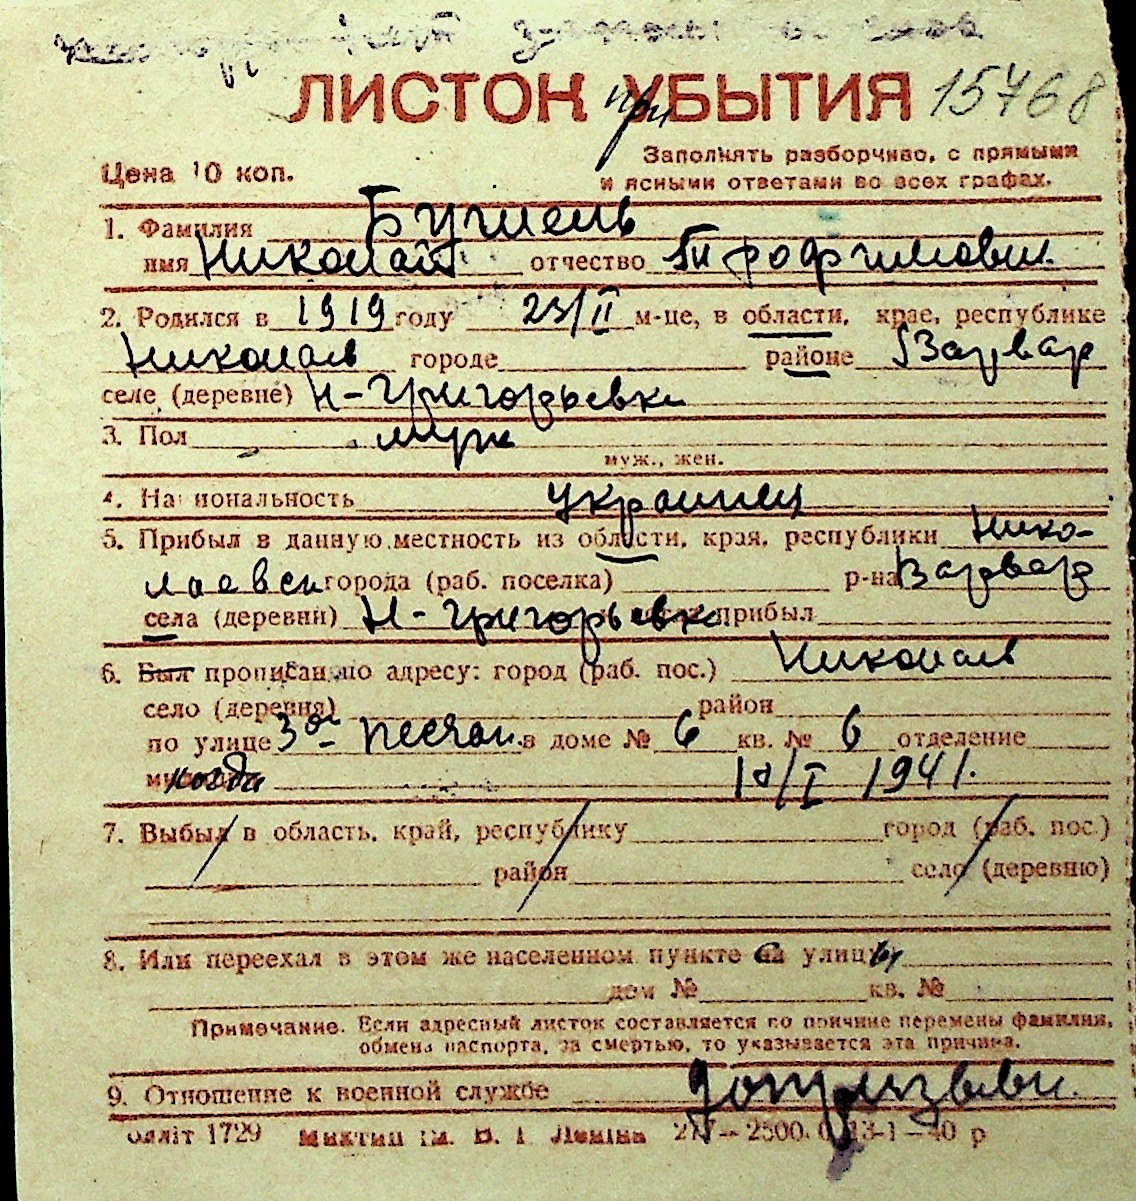 ЛИСТОК при УБЫТИЯ 15768
Цена 10 коп.
Заполнять разборчиво, с прямыми
и ясными ответами во всех графах.
1. Фамилия Бугмель
имя Николай отчество Трофимович.
2. Родился в 1919 году 23/II м-це, в области, крае, республике
Николаев городе районе Варвар
селе (деревне) Н-Григорьевка
3. Пол муж
муж., жен.
4. Национальность украинец
5. Прибыл в данную местность из области, края, республики Нико-
лаевск города (раб. поселка) р-на Варвар
села (деревни) Н-Григорьевка прибыл
6. Был прописан по адресу: город (раб. пос.) Николаев
село (деревня) район
по улице 3я Песчан. в доме № 6 кв. № 6 отделение
когда 10/I 1941.
7. Выбыл в область, край, республику город (раб. пос.)
район село (деревню)
8. Или переехал в этом же населенном пункте с улицы
дом № кв. №
Примечание. Если адресный листок составляется по причине перемены фамилии,
обмена паспорта, за смертью, то указывается эта причина.
9. Отношение к военной службе допризывн.
Облліт 1729 ім. В. І. Леніна 217—2500. 13-1—40 р